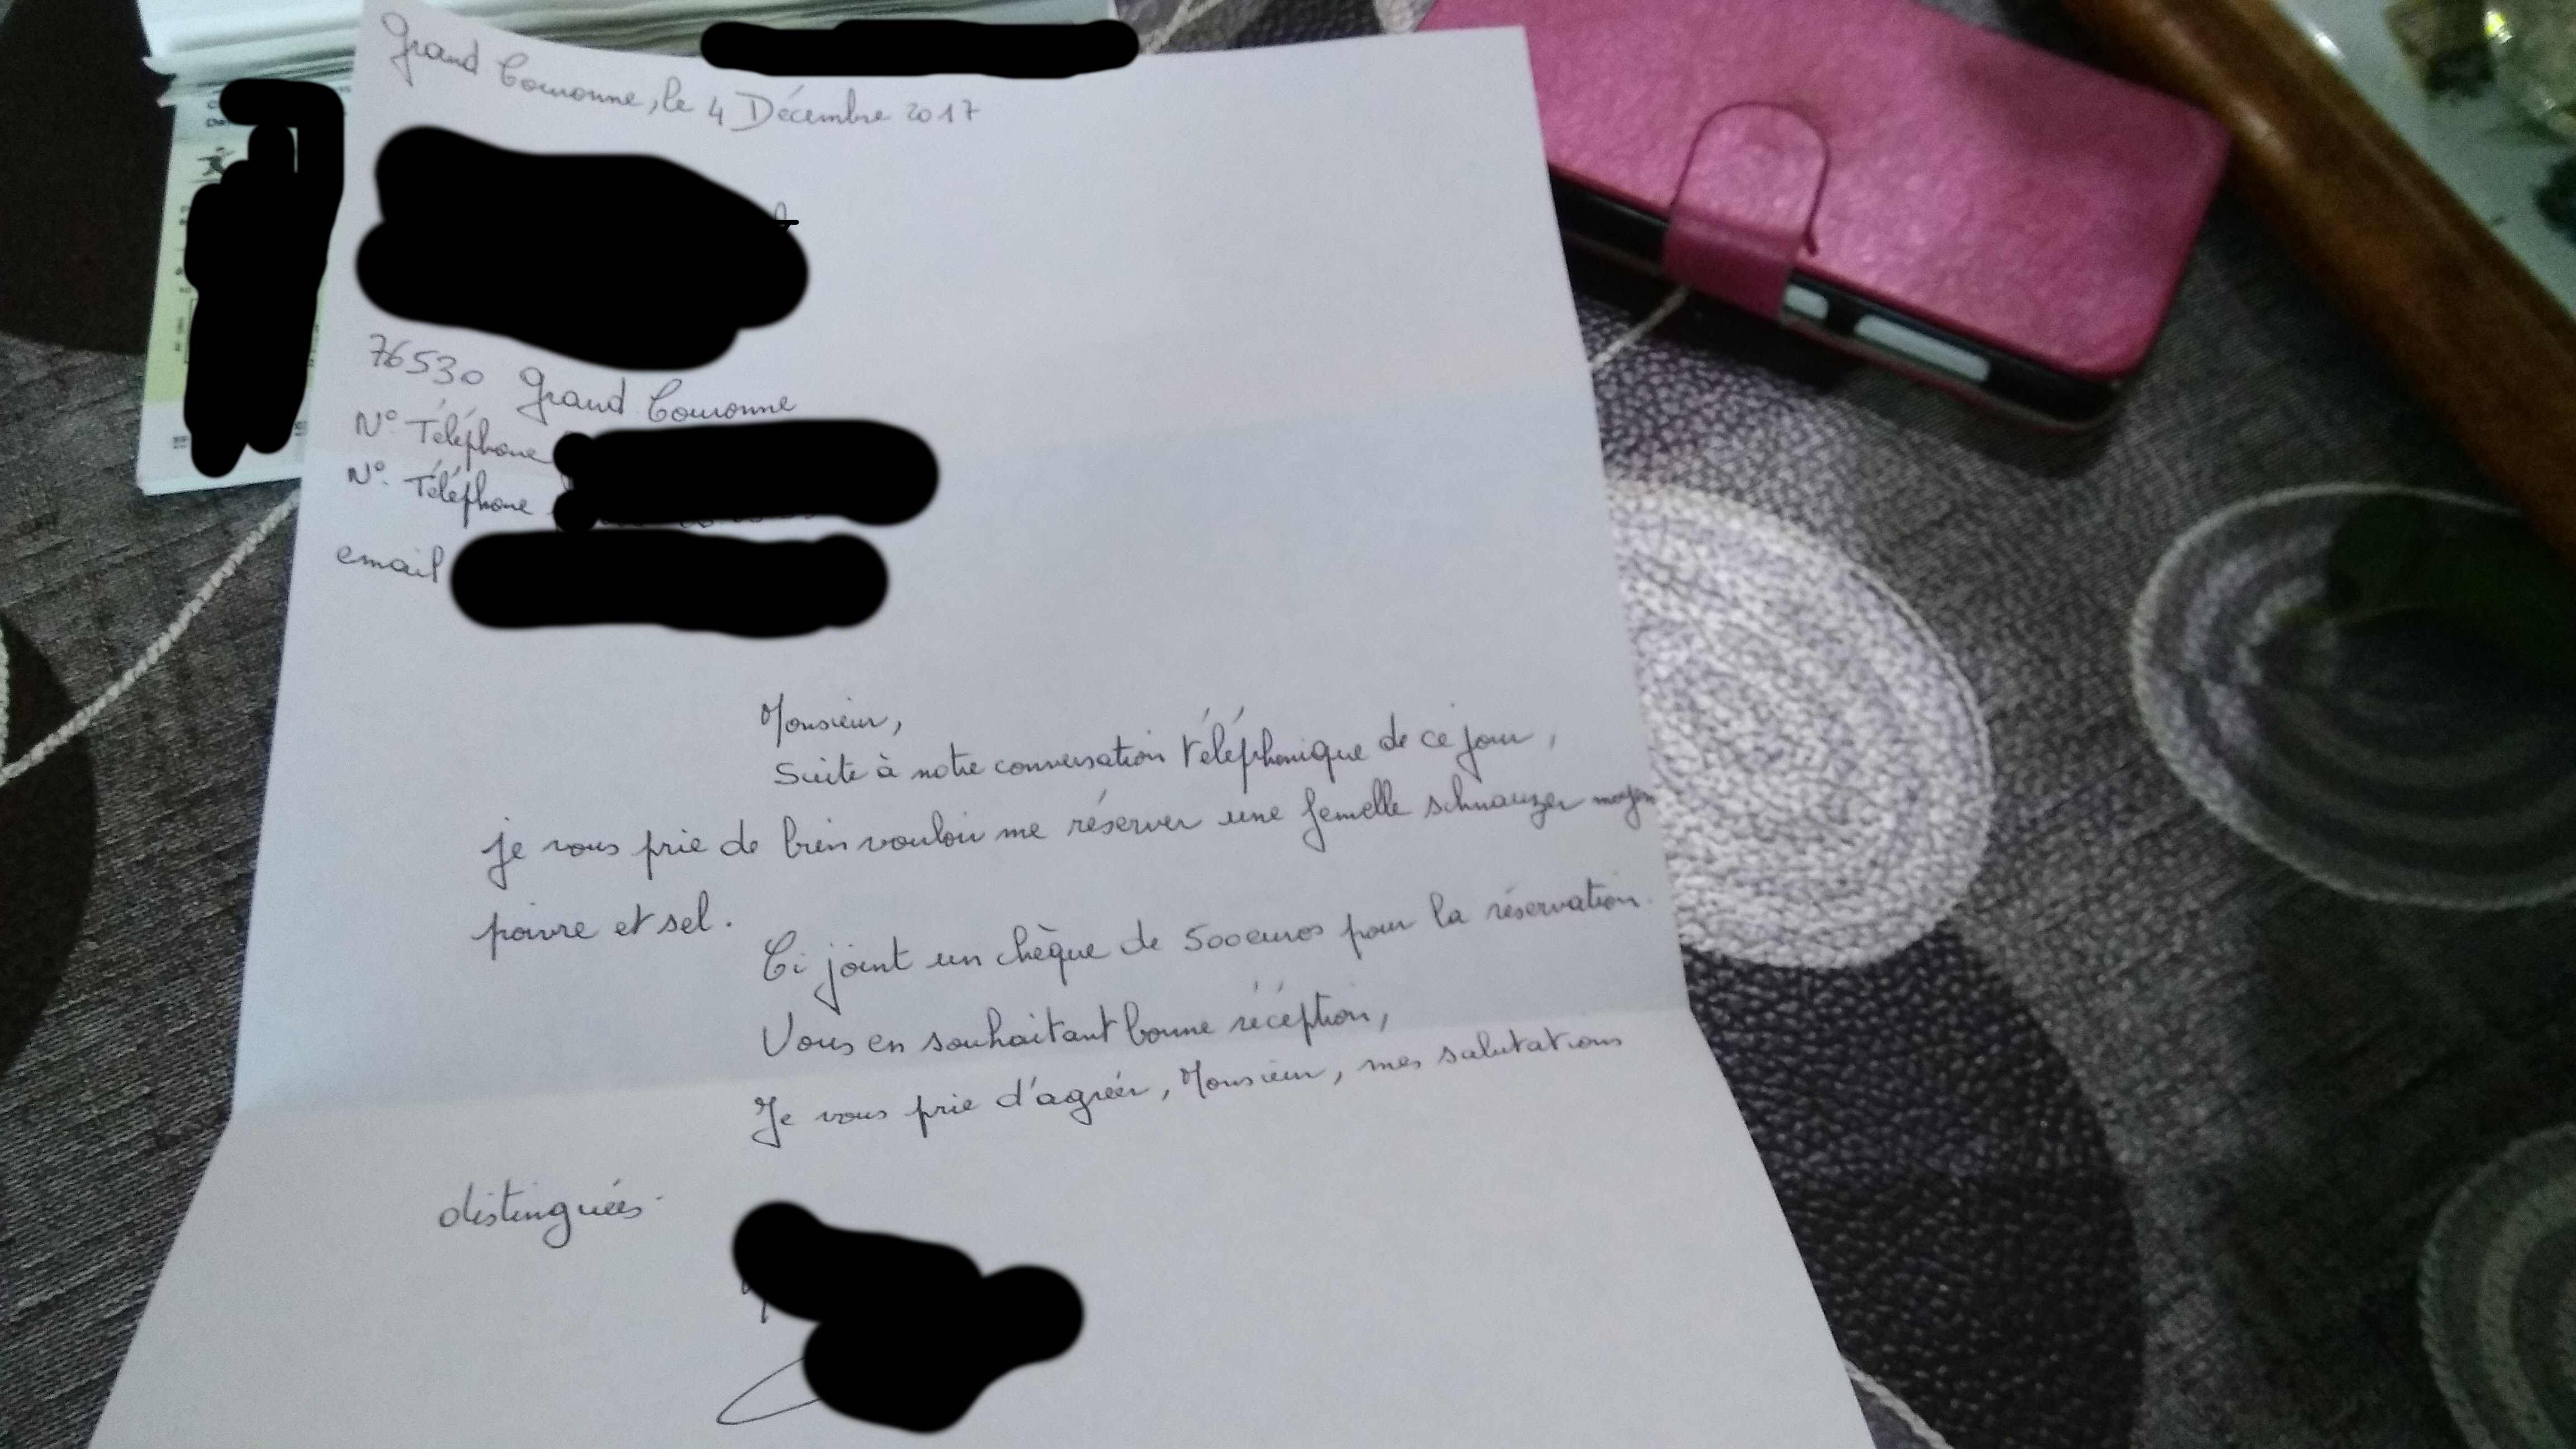 Grand Couronne, le 4 Décembre 2017
76530 Grand Couronne
N° Téléphone
N° Téléphone
email
Monsieur,
Suite à notre conversation téléphonique de ce jour,
je vous prie de bien vouloir me réserver une femelle schnauzer moyen
poivre et sel.
Ci joint un chèque de 500 euros pour la réservation.
Vous en souhaitant bonne récéption,
Je vous prie d'agréer, Monsieur, mes salutations
distinguées.